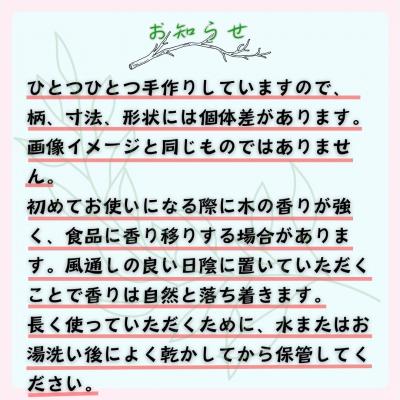 お知らせ
ひとつひとつ手作りしていますので、
柄、寸法、形状には個体差があります。
画像イメージと同じものではありませ
ん。
初めてお使いになる際に木の香りが強
く、食品に香り移りする場合がありま
す。風通しの良い日陰に置いていただく
ことで香りは自然と落ち着きます。
長く使っていただくために、水またはお
湯洗い後によく乾かしてから保管してく
ださい。